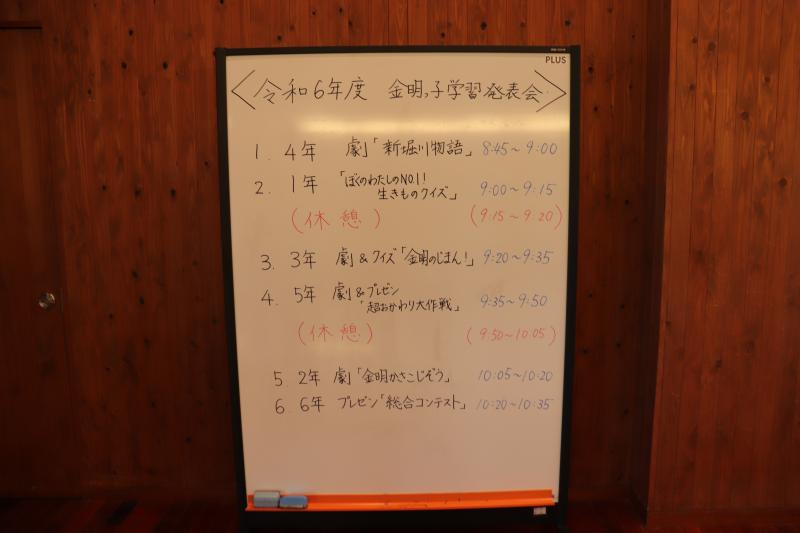 PLUS
〈令和6年度 金明っ子学習発表会〉
1. 4年 劇「新堀川物語」 8:45~9:00
2. 1年 「ぼくのわたしのNO.1!
生きものクイズ」 9:00~9:15
(休憩) (9:15~9:20)
3. 3年 劇&クイズ「金明のじまん!」 9:20~9:35
4. 5年 劇&プレゼン
「超おかわり大作戦」 9:35~9:50
(休憩) (9:50~10:05)
5. 2年 劇「金明かさこじぞう」 10:05~10:20
6. 6年 プレゼン「総合コンテスト」 10:20~10:35